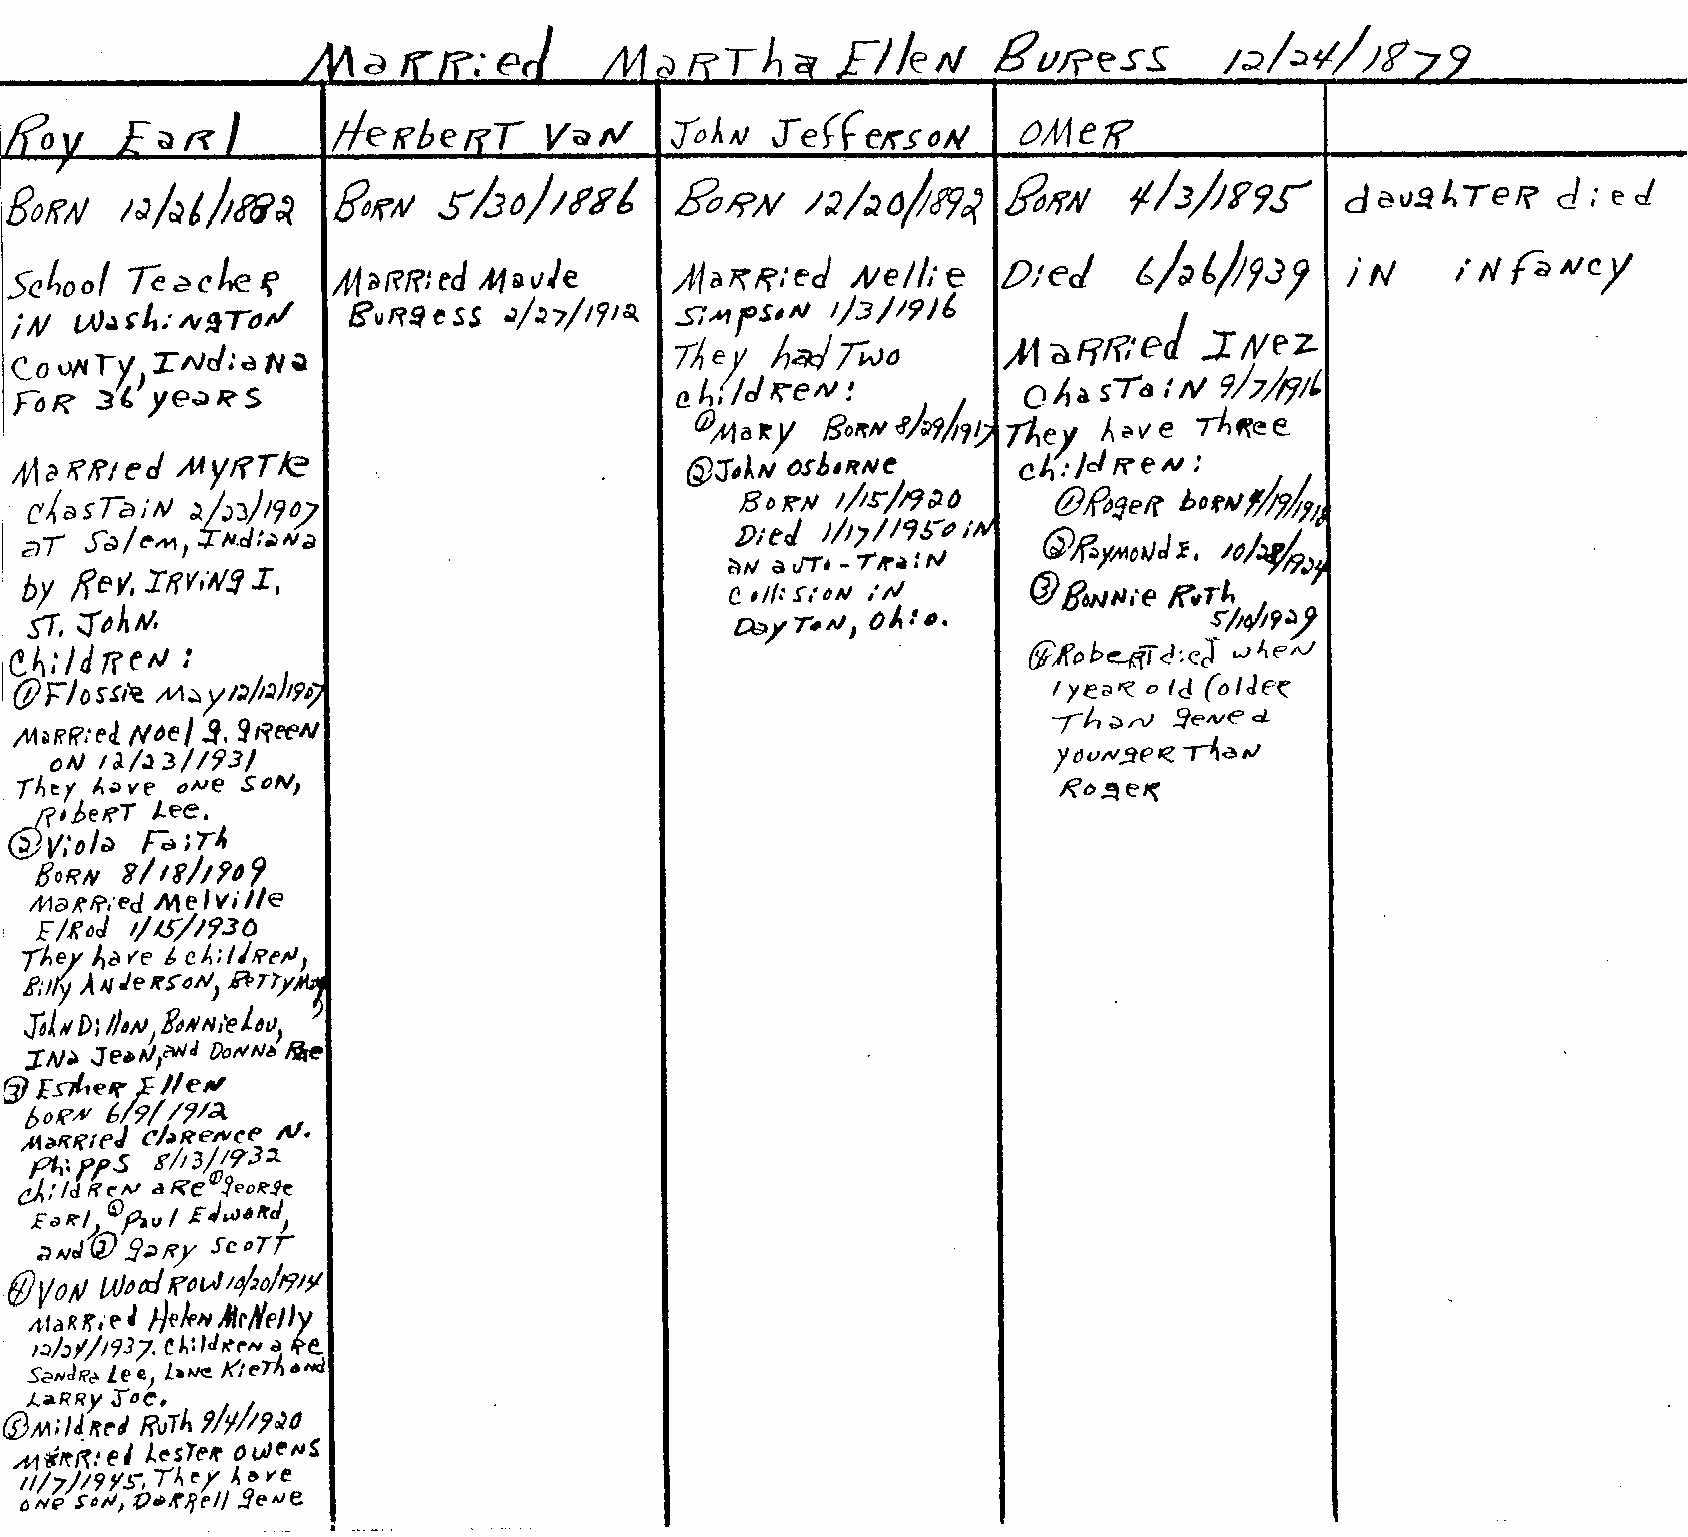 Married Martha Ellen Buress 12/24/1879
Roy Earl
Born 12/26/1882
School Teacher
in Washington
County, Indiana
For 36 years
Married Myrtle
Chastain 2/23/1907
at Salem, Indiana
by Rev. Irving I.
St. John.
Children:
① Flossie May 12/12/1907
Married Noel G. Green
on 12/23/1931
They have one son,
Robert Lee.
② Viola Faith
Born 8/18/1909
Married Melville
Elrod 1/15/1930
They have 6 children,
Billy Anderson, Betty May,
John Dillon, Bonnie Lou,
Ina Jean, and Donna Rae
③ Esther Ellen
born 6/9/1912
Married Clarence N.
Phipps 8/13/1932
Children are ① George
Earl, ② Paul Edward,
and ③ Gary Scott
④ Von Woodrow 10/20/1914
Married Helen McNelly
12/24/1937. Children are
Sandra Lee, Lane Kieth and
Larry Joe.
⑤ Mildred Ruth 9/4/1920
Married Lester Owens
11/7/1945. They have
one son, Darrell Gene
Herbert Van
Born 5/30/1886
Married Maude
Burgess 2/27/1912
John Jefferson
Born 12/20/1892
Married Nellie
Simpson 1/3/1916
They had Two
children:
① Mary Born 8/29/1917
② John Osborne
Born 1/15/1920
Died 1/17/1950 in
an auto-train
collision in
Dayton, Ohio.
Omer
Born 4/3/1895
Died 6/26/1939
Married Inez
Chastain 9/7/1916
They have Three
children:
① Roger born 4/19/1918
② Raymond E. 10/28/1924
③ Bonnie Ruth
5/10/1929
④ Robert died when
1 year old (older
Than gened
younger Than
Roger
daughter died
in infancy